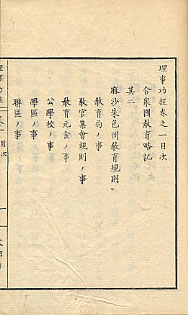 理事功程卷之一目次
合衆國敎育略記
其二
麻沙朱色州敎育規則
敎育局ノ事
敎官集會規則ノ事
敎育元金ノ事
公學校ノ事
學區ノ事
聯區ノ事